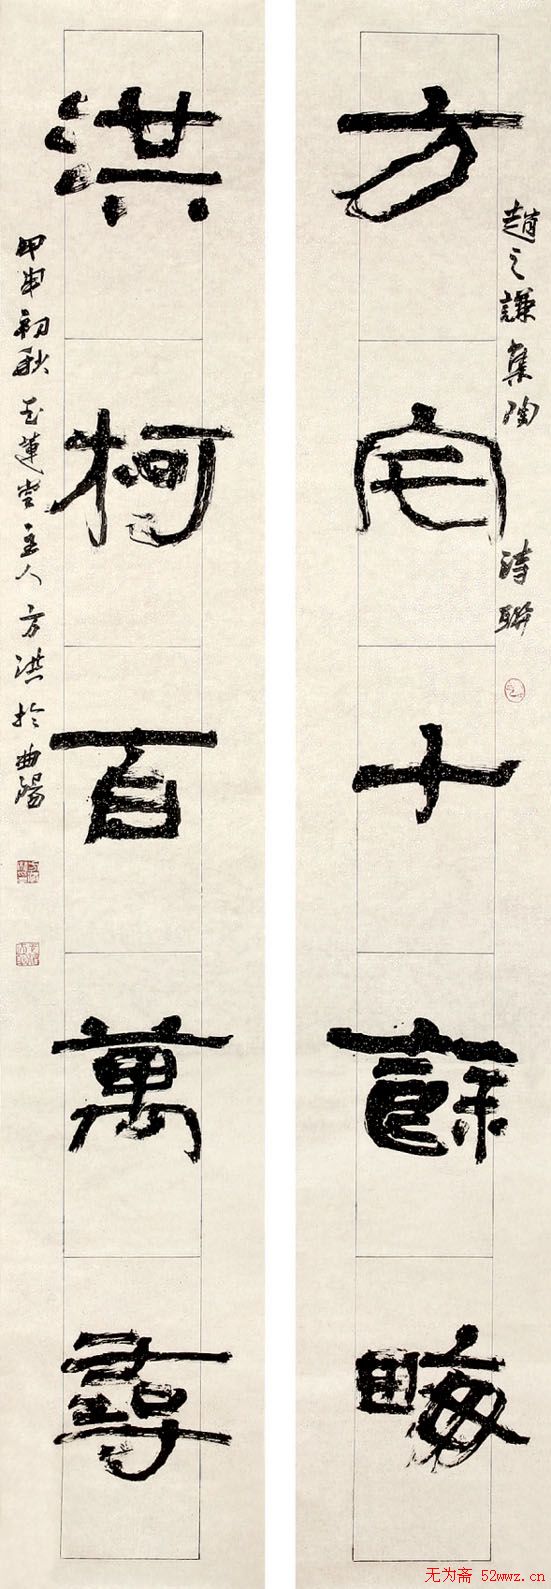 趙之謙集陶詩聯
方宅十餘畮
洪柯百萬尋
甲申初秋蓮堂主人方洪於曲陽
无为斋 52wwz.cn